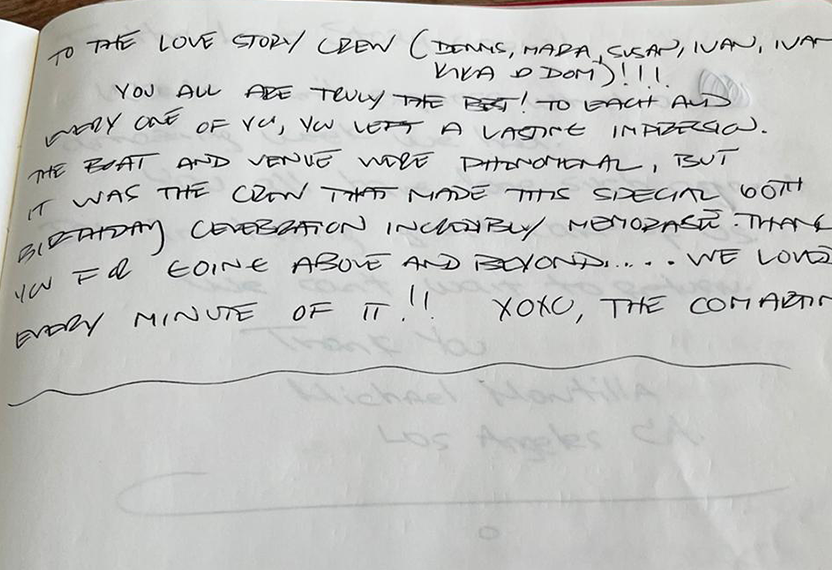 TO THE LOVE STORY CREW (DENNIS, MARA, SUSAN, IVAN, IVAN
KIKA & DOM)!!!
YOU ALL ARE TRULY THE BEST! TO EACH AND
EVERY ONE OF YOU, YOU LEFT A LASTING IMPRESSION.
THE BOAT AND VENUE WERE PHONOMONAL, BUT
IT WAS THE CREW THAT MADE THIS SPECIAL 60TH
BIRTHDAY CELEBRATION INCREDIBLY MEMORABLE. THANK
YOU FOR GOING ABOVE AND BEYOND..... WE LOVED
EVERY MINUTE OF IT!! XOXO, THE COMARTIN
Thank You
Michael Montilla
Los Angeles CA.